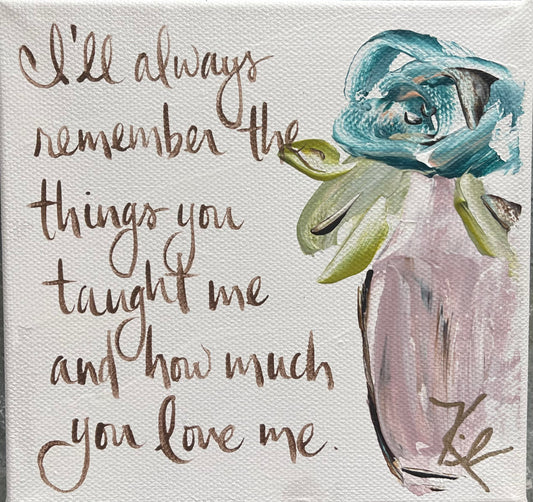 I'll always
remember the
things you
taught me
and how much
you love me.